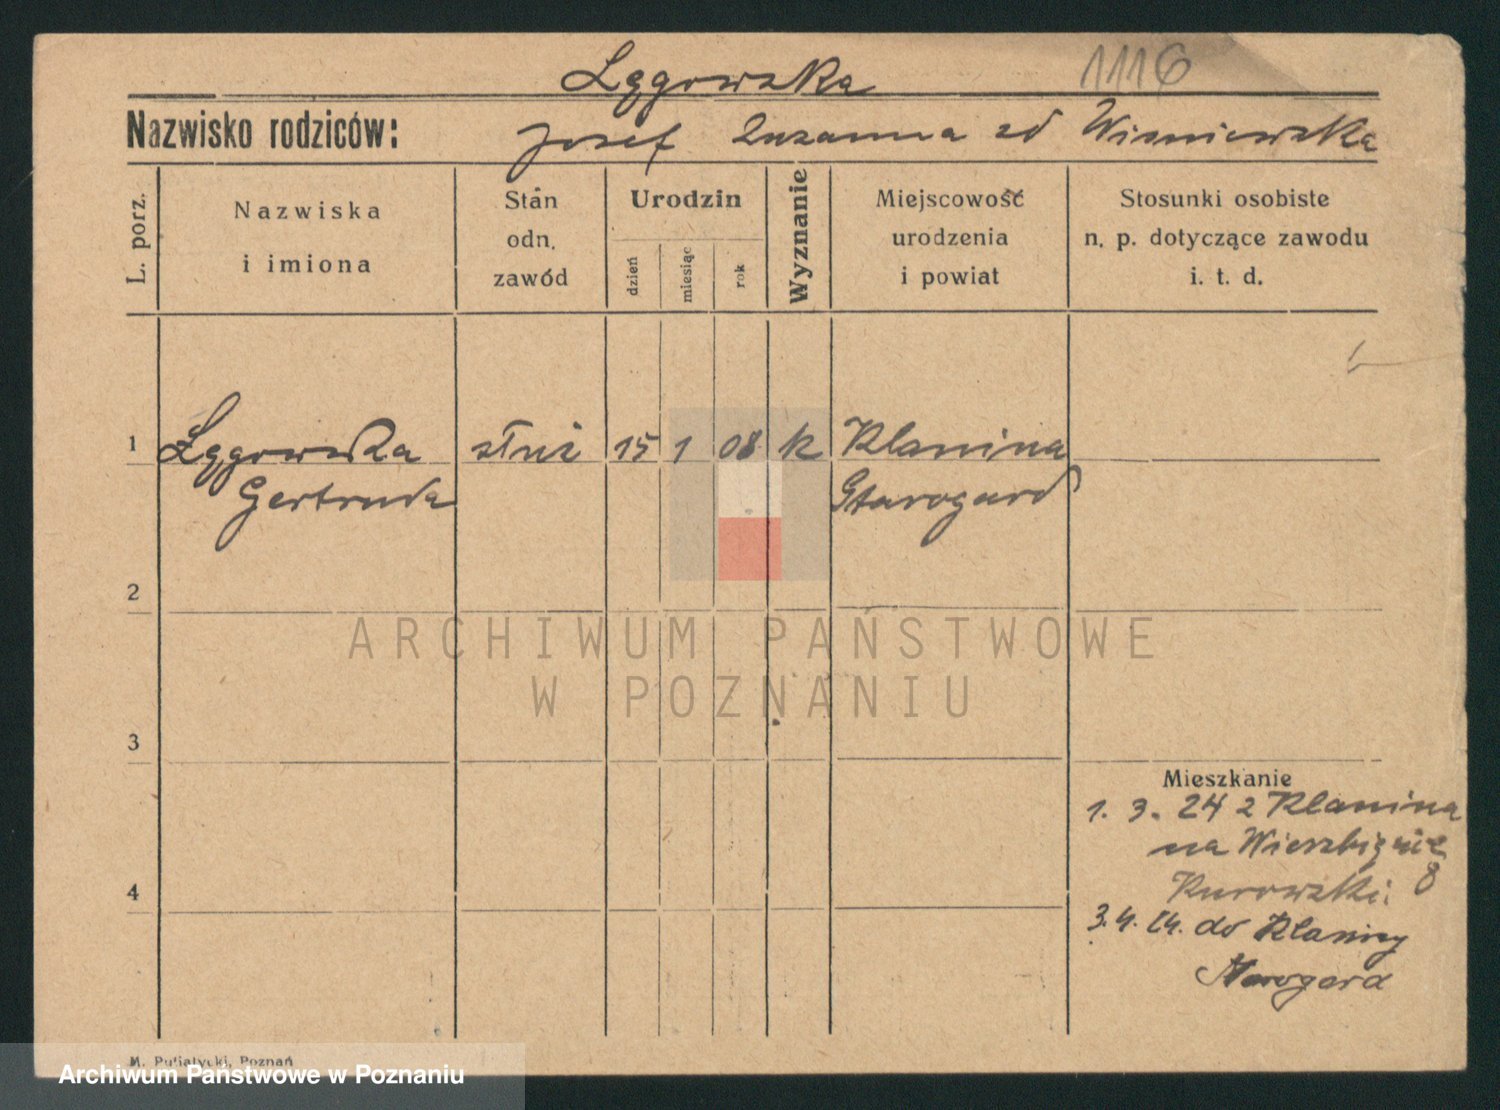 Łęgowska
1116
Nazwisko rodziców: Josef Zuzanna zd Wisniewska
L. porz.
Nazwiska
i imiona
Stan
odn.
zawód
Urodzin
dzień
miesiąc
rok
Wyznanie
Miejscowość
urodzenia
i powiat
Stosunki osobiste
n. p. dotyczące zawodu
i. t. d.
1 Łęgowska służ 15 1 08 k Klanina
Gertruda Starogard
2
3
4
Mieszkanie
1. 3. 24 z Klanina
na Wierzbięcice
8
Kurowski
3.4.24. do Klaniny
Starogard
M. Putiatycki, Poznań
ARCHIWUM PAŃSTWOWE
W POZNANIU
Archiwum Państwowe w Poznaniu